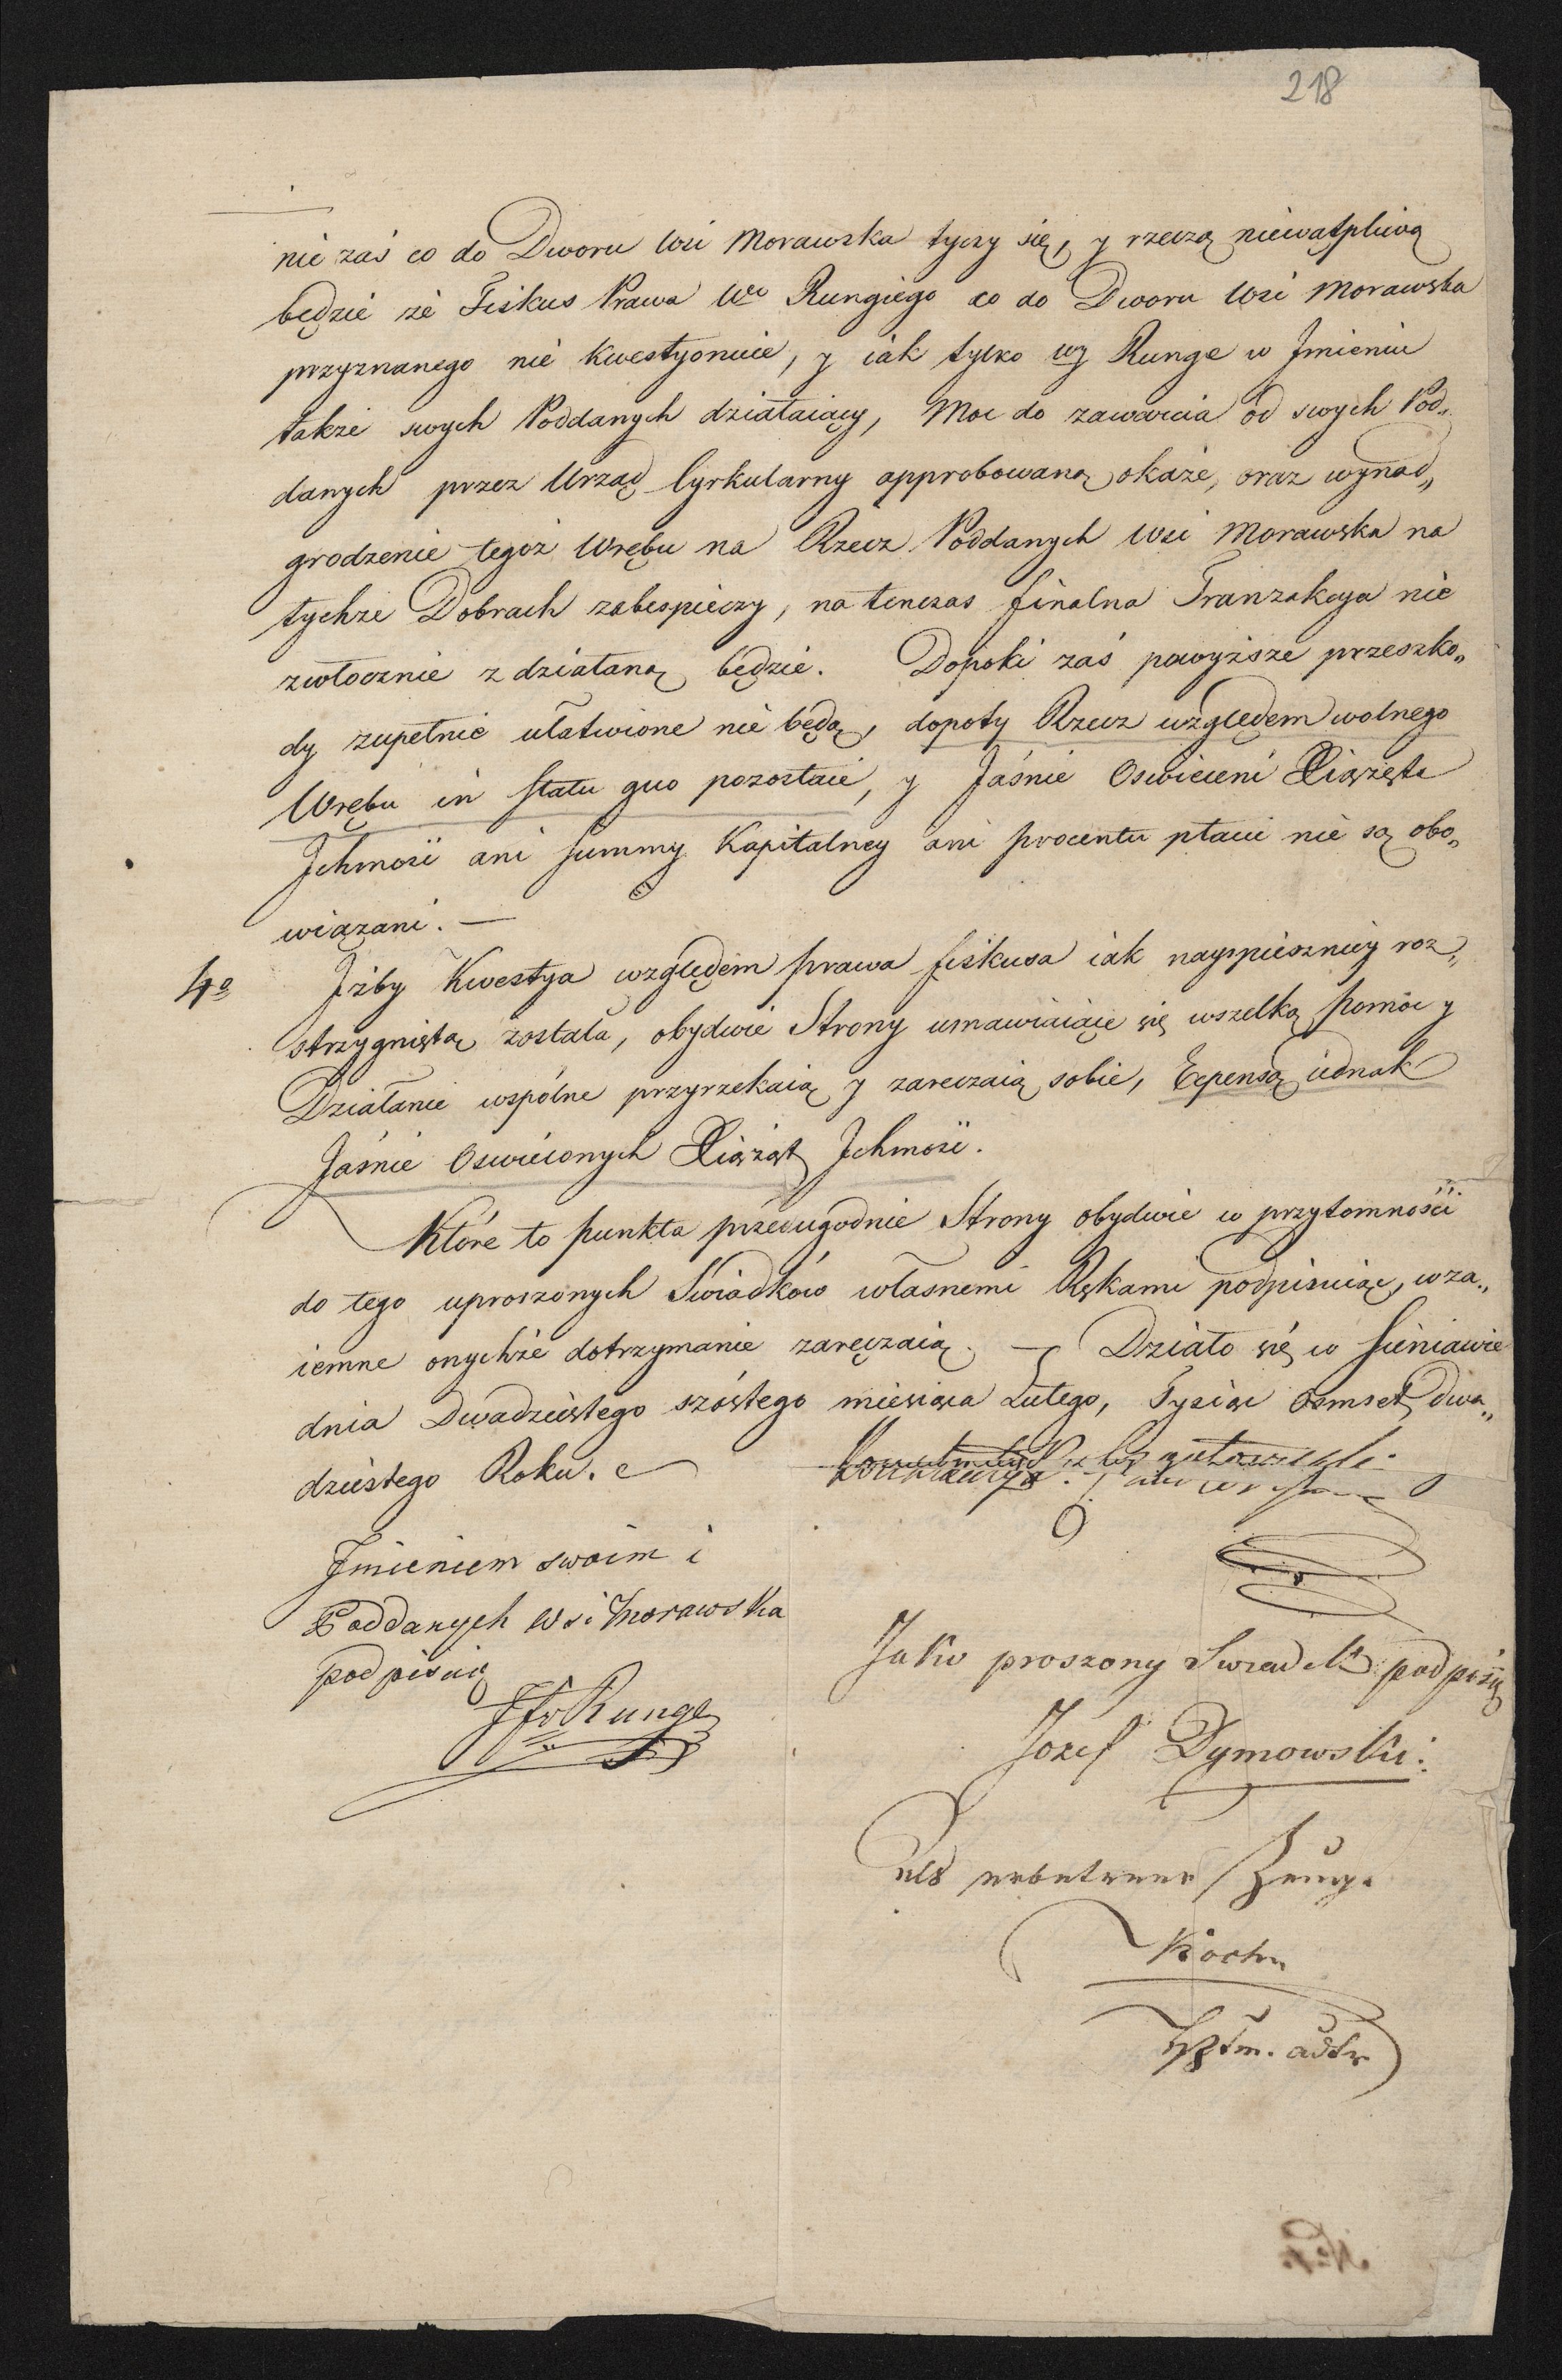 218
nie zaś co do Dworu Wsi Morawska tyczy się, y rzeczą niewątpliwą
będzie że Fiskus Prawa Wo Rungiego co do Dworu Wsi Morawska
przyznanego nie kwestyonuie, y iak tylko wg Runge w Jmieniu
także swych Poddanych działaiący, Moc do zawarcia od swych Pod„
danych przez Urząd Cyrkularny approbowaną okaże, oraz wynad„
grodzenie tegoż Wrębu na Rzecz Poddanych Wsi Morawska na
tychże Dobrach zabespieczy, na tenczas finalna Tranzakcya nie
zwłocznie zdziałaną będzie. Dopoki zaś powyższe przeszko„
dy zupełnie ułatwione nie będą, dopoty Rzecz względem wolnego
Wrębu in Statu quo pozostaie, y Jaśnie Oswieceni Xiążęta
Jchmość ani Summy Kapitalney ani procentu płacić nie są obo„
wiązani. —
4o Jżby Kwestya względem prawa fiskusa iak nayspieszniey roz„
strzygniętą została, obydwie Strony umawiaiące się wszelką pomoc y
Działanie wspólne przyrzekaią y zareczaią sobie, Expensą iednak
Jaśnie Oswieconych Xiążąt Jchmość.
Które to punkta przeugodnie Strony obydwie w przytomności
do tego uproszonych Świadków własnemi Rękami podpisuiąc, wza„
iemne onychże dotrzymanie zaręczaią. — Działo się w Sieniawie
dnia Dwadziestego szóstego miesiąca Lutego, Tysiąc Osmset dwa„
dziestego Roku.
Jmieniem swoim i
Poddanych Wsi Morawska
podpisuię
Runge
Jako proszony Swiadek podpisuię
Jozef Dymowski.
als erbetener Zeuge
Kochn
No 1.